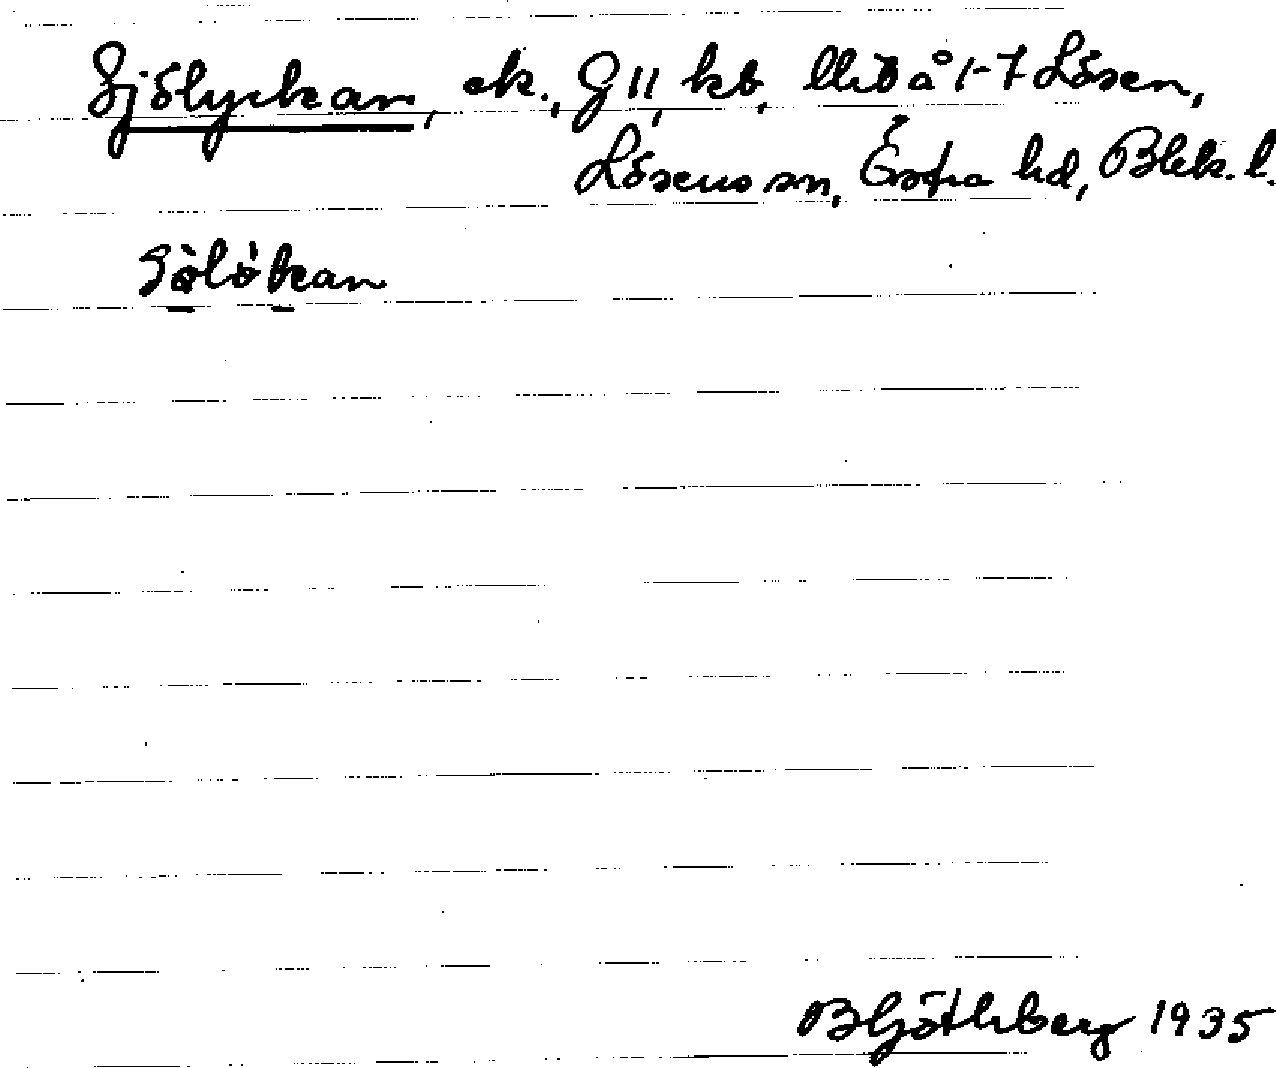 Sjölyckan, ek., G 11, kb, Ilub å 1-7 Lösen,
Lösens sn, Östra hd, Blek. l.
Sölökan
B Götlberg 1935